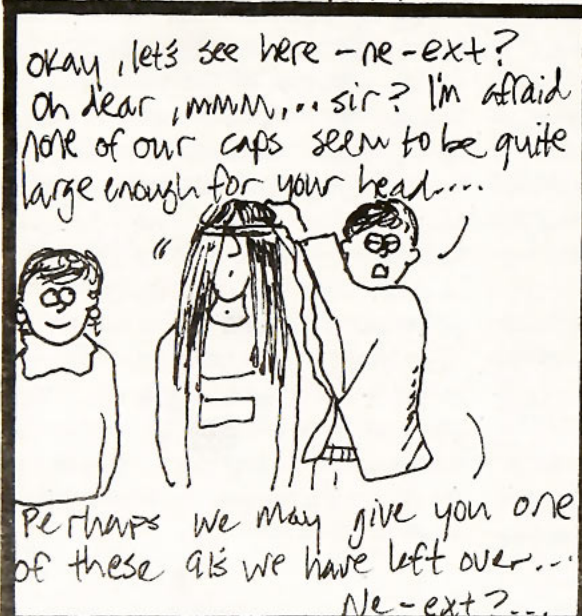 okay, let's see here - ne - ext?
Oh dear, mmm,.. sir? I'm afraid
none of our caps seem to be quite
large enough for your head....
Perhaps we may give you one
of these as we have left over...
Ne - ext?...